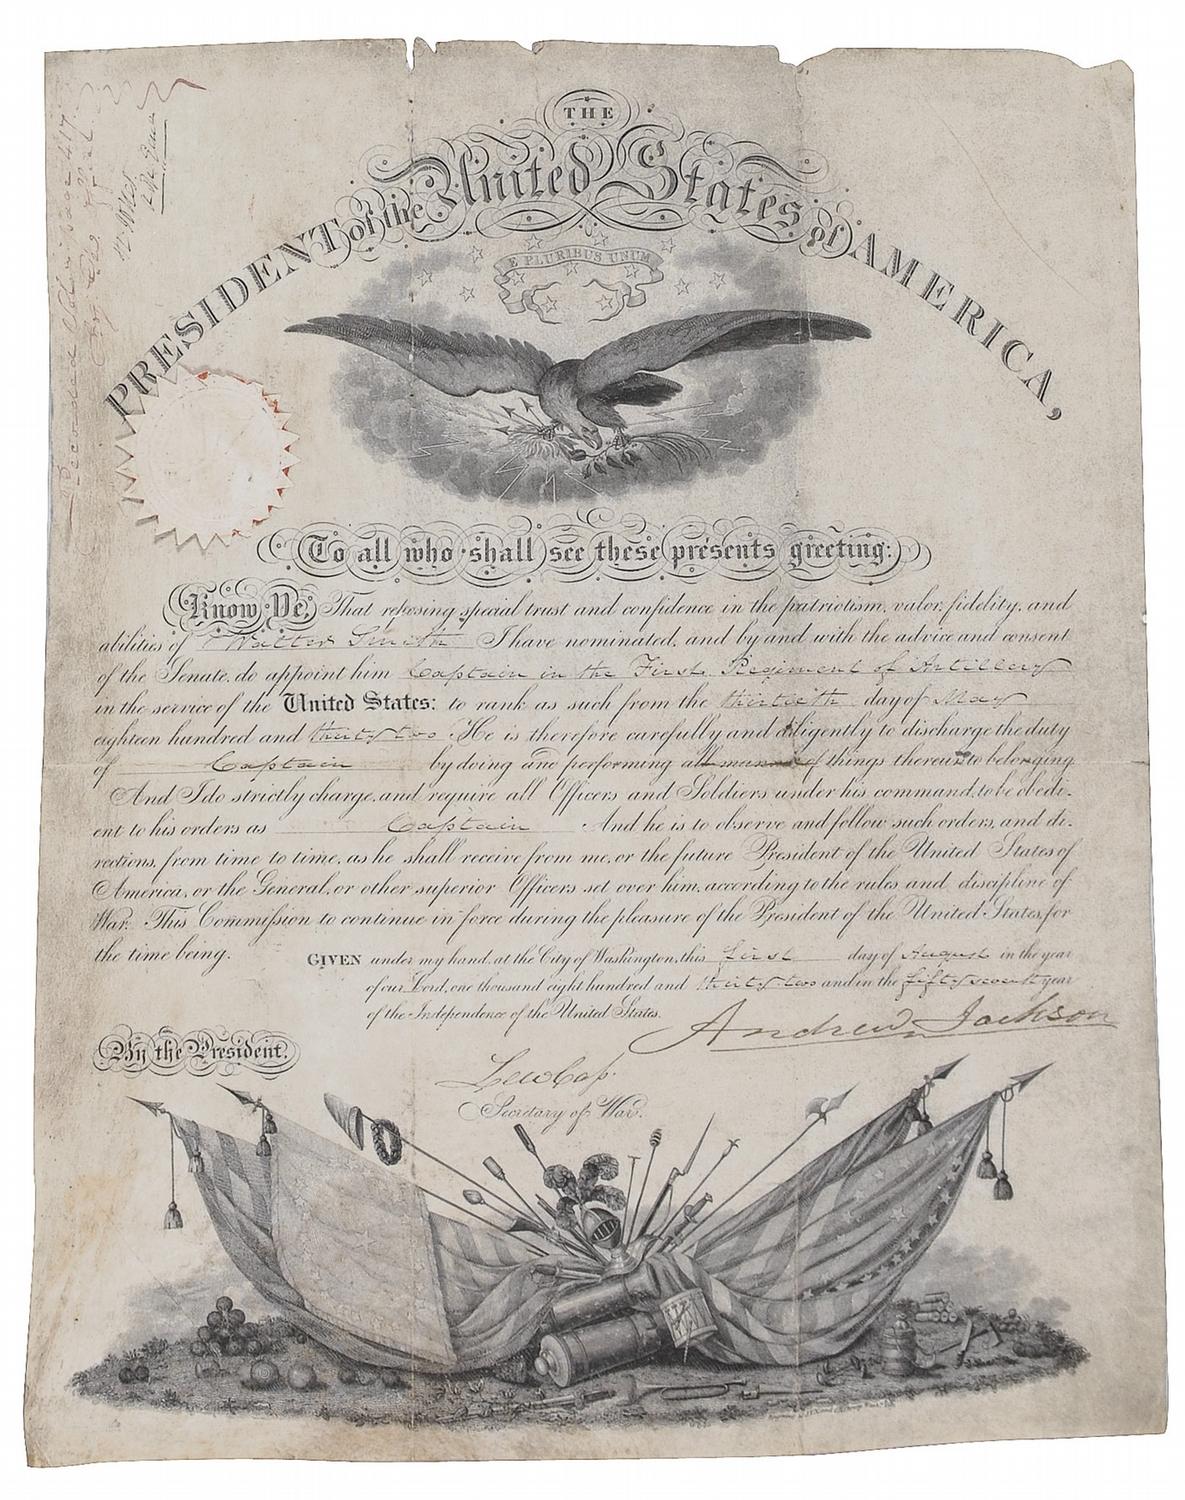 THE
PRESIDENT of the United States of AMERICA,
E PLURIBUS UNUM
To all who shall see these presents greeting:
Know Ye, That reposing special trust and confidence in the patriotism, valor, fidelity, and
abilities of Walter Smith I have nominated, and by and with the advice and consent
of the Senate, do appoint him Captain in the First Regiment of Artillery
in the service of the United States: to rank as such from the thirtieth day of May
eighteen hundred and thirty two He is therefore carefully and diligently to discharge the duty
of Captain by doing and performing all manner of things thereunto belonging.
And I do strictly charge, and require all Officers and Soldiers under his command, to be obedi-
ent to his orders as Captain And he is to observe and follow such orders, and di-
rections, from time to time, as he shall receive from me, or the future President of the United States of
America, or the General, or other superior Officers set over him, according to the rules and discipline of
War. This Commission to continue in force during the pleasure of the President of the United States, for
the time being.
GIVEN under my hand, at the City of Washington, this first day of August in the year
of our Lord, one thousand eight hundred and thirty two and in the fifty seventh year
of the Independence of the United States.
Andrew Jackson
By the President.
Lew Cass
Secretary of War.
Recorded Vol. page 417